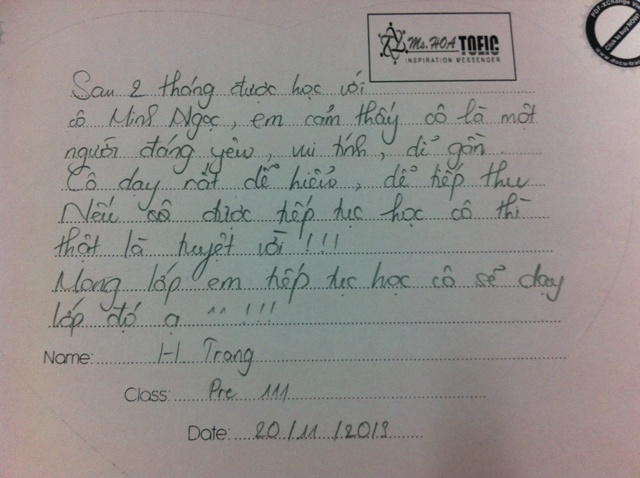 Ms. HOA TOEIC
INSPIRATION MESSENGER
Sau 2 tháng được học với
cô Minh Ngọc, em cảm thấy cô là một
người đáng yêu, vui tính, dễ gần.
Cô dạy rất dễ hiểu, dễ tiếp thu
Nếu cô được tiếp tục học cô thì
thật là tuyệt vời!!!
Mong lớp em tiếp tục học cô sẽ dạy
lớp đó ạ ^^!!!
Name: H Trang
Class: Pre 111
Date: 20/11/2013